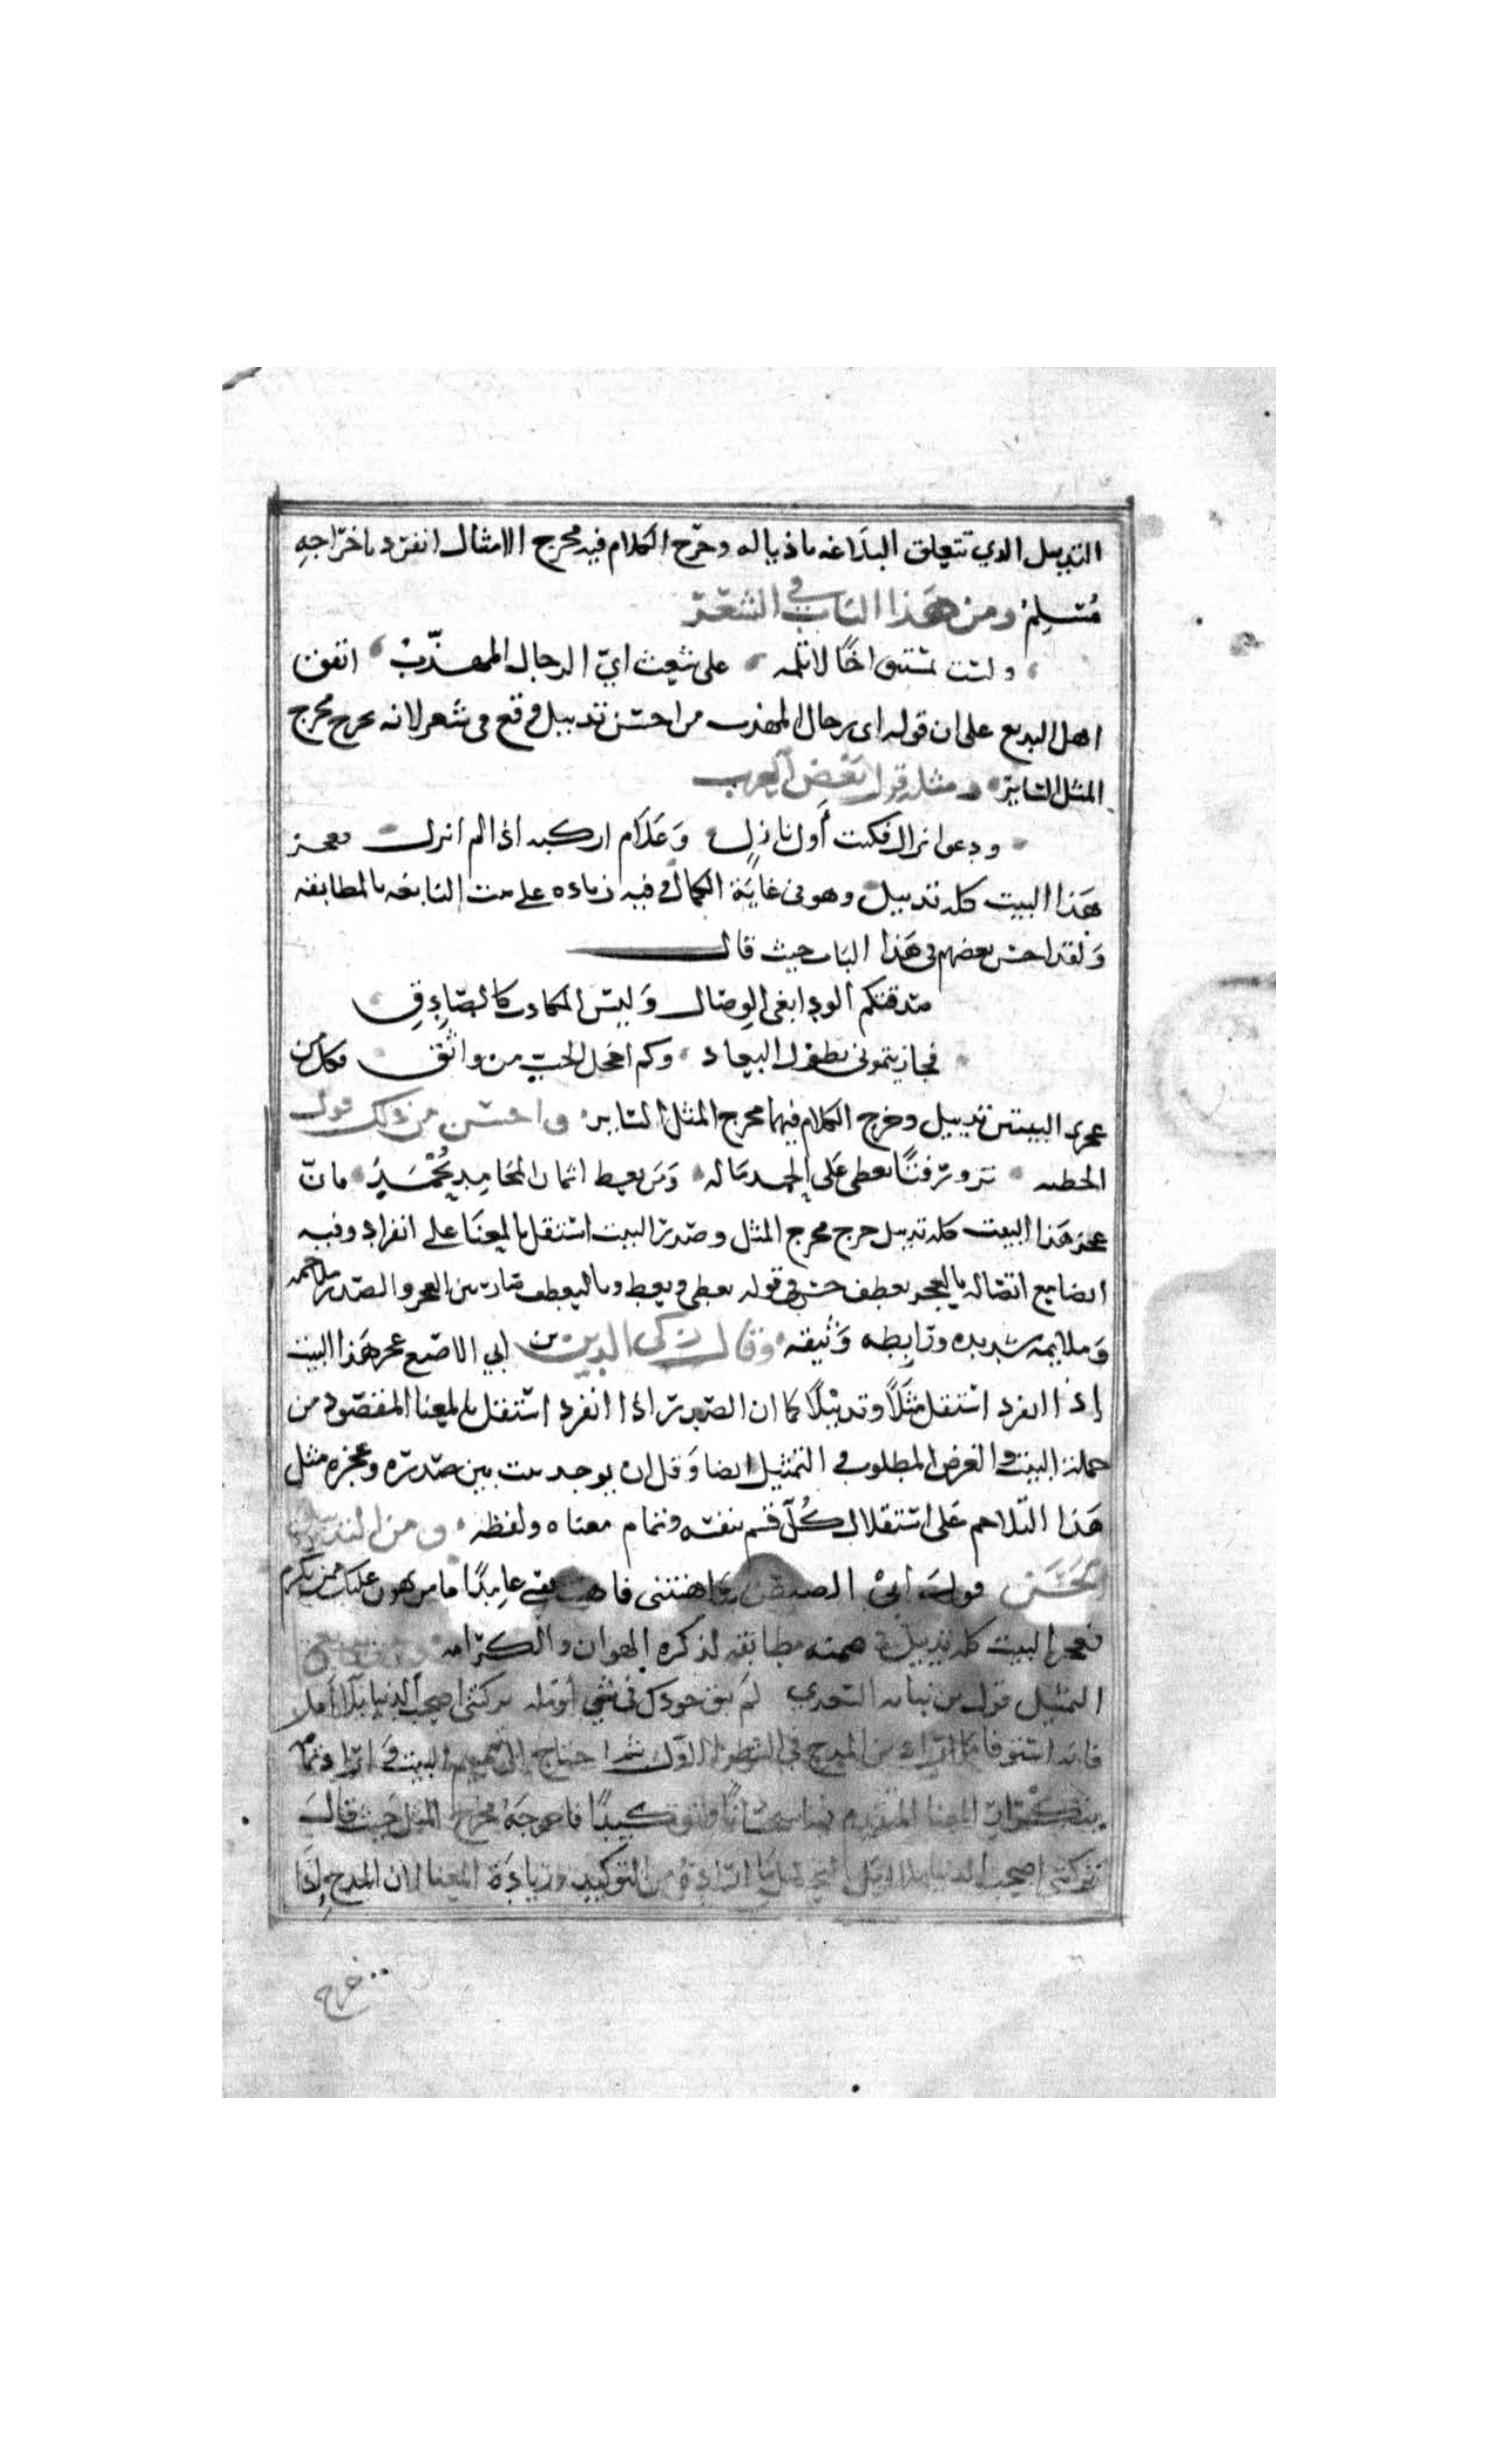 التدييل الدي تتعلق البلاغه باذياله وخرّج الكلام فيه مخرج الامثال انفرد باخراجه
مُسلِم ومن هَذا الباب في الشعر
ولست بمستبق اخًا لا تلمه على شعث ايّ الرجال المهذّب اتفق
اهل البديع على ان قوله اى الرجال المهذب من احسن تدييل وقع في شعر لانه خرج مخرج
المثل الساير ومثله قول بَعْض العرب
ودعوا نزال فكنت أول نازلٍ وَعَلَام اركبه اذا لم انزل فعجز
هَذا البيت كله تدييل وهو في غاية الكمال وفيه زياده على بيت النابغه بالمطابقه
وَلقد احسن بعضهم في هَذا الباب حيث قال
صدقتكم الود ابغى الوصال وَليس المكادب كالصَّادِقِ
فجازيتموني بطول البعاد وكم اخجل الحب من واثق فكل من
عجزى البيتين تدييل وخرج الكلام فيهما مخرج المثل الساير واحسن من ذلك قول
الحطيه تزور فتًا يعطى عَلى الحمد مَاله وَمَن يعط اثمان المحَامِدِ يُحْمَدِ فانّ
عجز هَذا البيت كله تدييل خرج مخرج المثل وصدر البيت استقل بالمعنَا على انفراد وفيه
ايضا مع اتصاله بالعجز تعطف حسن في قوله يعطى ويعط وبالتعطف صار بين العجز والصدر ملاحمه
وَملايمه شديده ورَابِطه وَثيقه وقال زكى الدين بن ابي الاصبع عجز هَذا البيت
إذا انفرد استقل مثَلًا وتدييلًا كما ان الصدر اذا انفرد استقل بالمعنا المقصود من
جملة البيت والغرض المطلوب في التمثيل ايضا وَقل ان يوجد بيت بين صدره وعجزه مثل
هَذا التلاحم عَلى استقلال كُلّ قسم بنفسه وتمام معناه ولفظه ومن التدييل
الحَسَن قول ابى الشيص وَاهنتنى فاهنت نفسي عامِدًا ما من يهون عليك ممن يكرم
فعجز البيت كله تدييل مطابقه لذكره الهوان والكرامه
التمثيل قول بن نباته السعدي لم يبق جودك لى شي أومله تركتنى اصحب الدنيا بلا أمل
فانه استوفا المدح في الشطر الاول ثم احتاج الى تتميم البيت
المعنا المتقدم وتوكيدًا فاخرجَه مخرج المثل حيث قال
تركتنى اصحب الدنيا بلا امل من التوكيد وزيادة المعنا لان المدح إذا
خرج